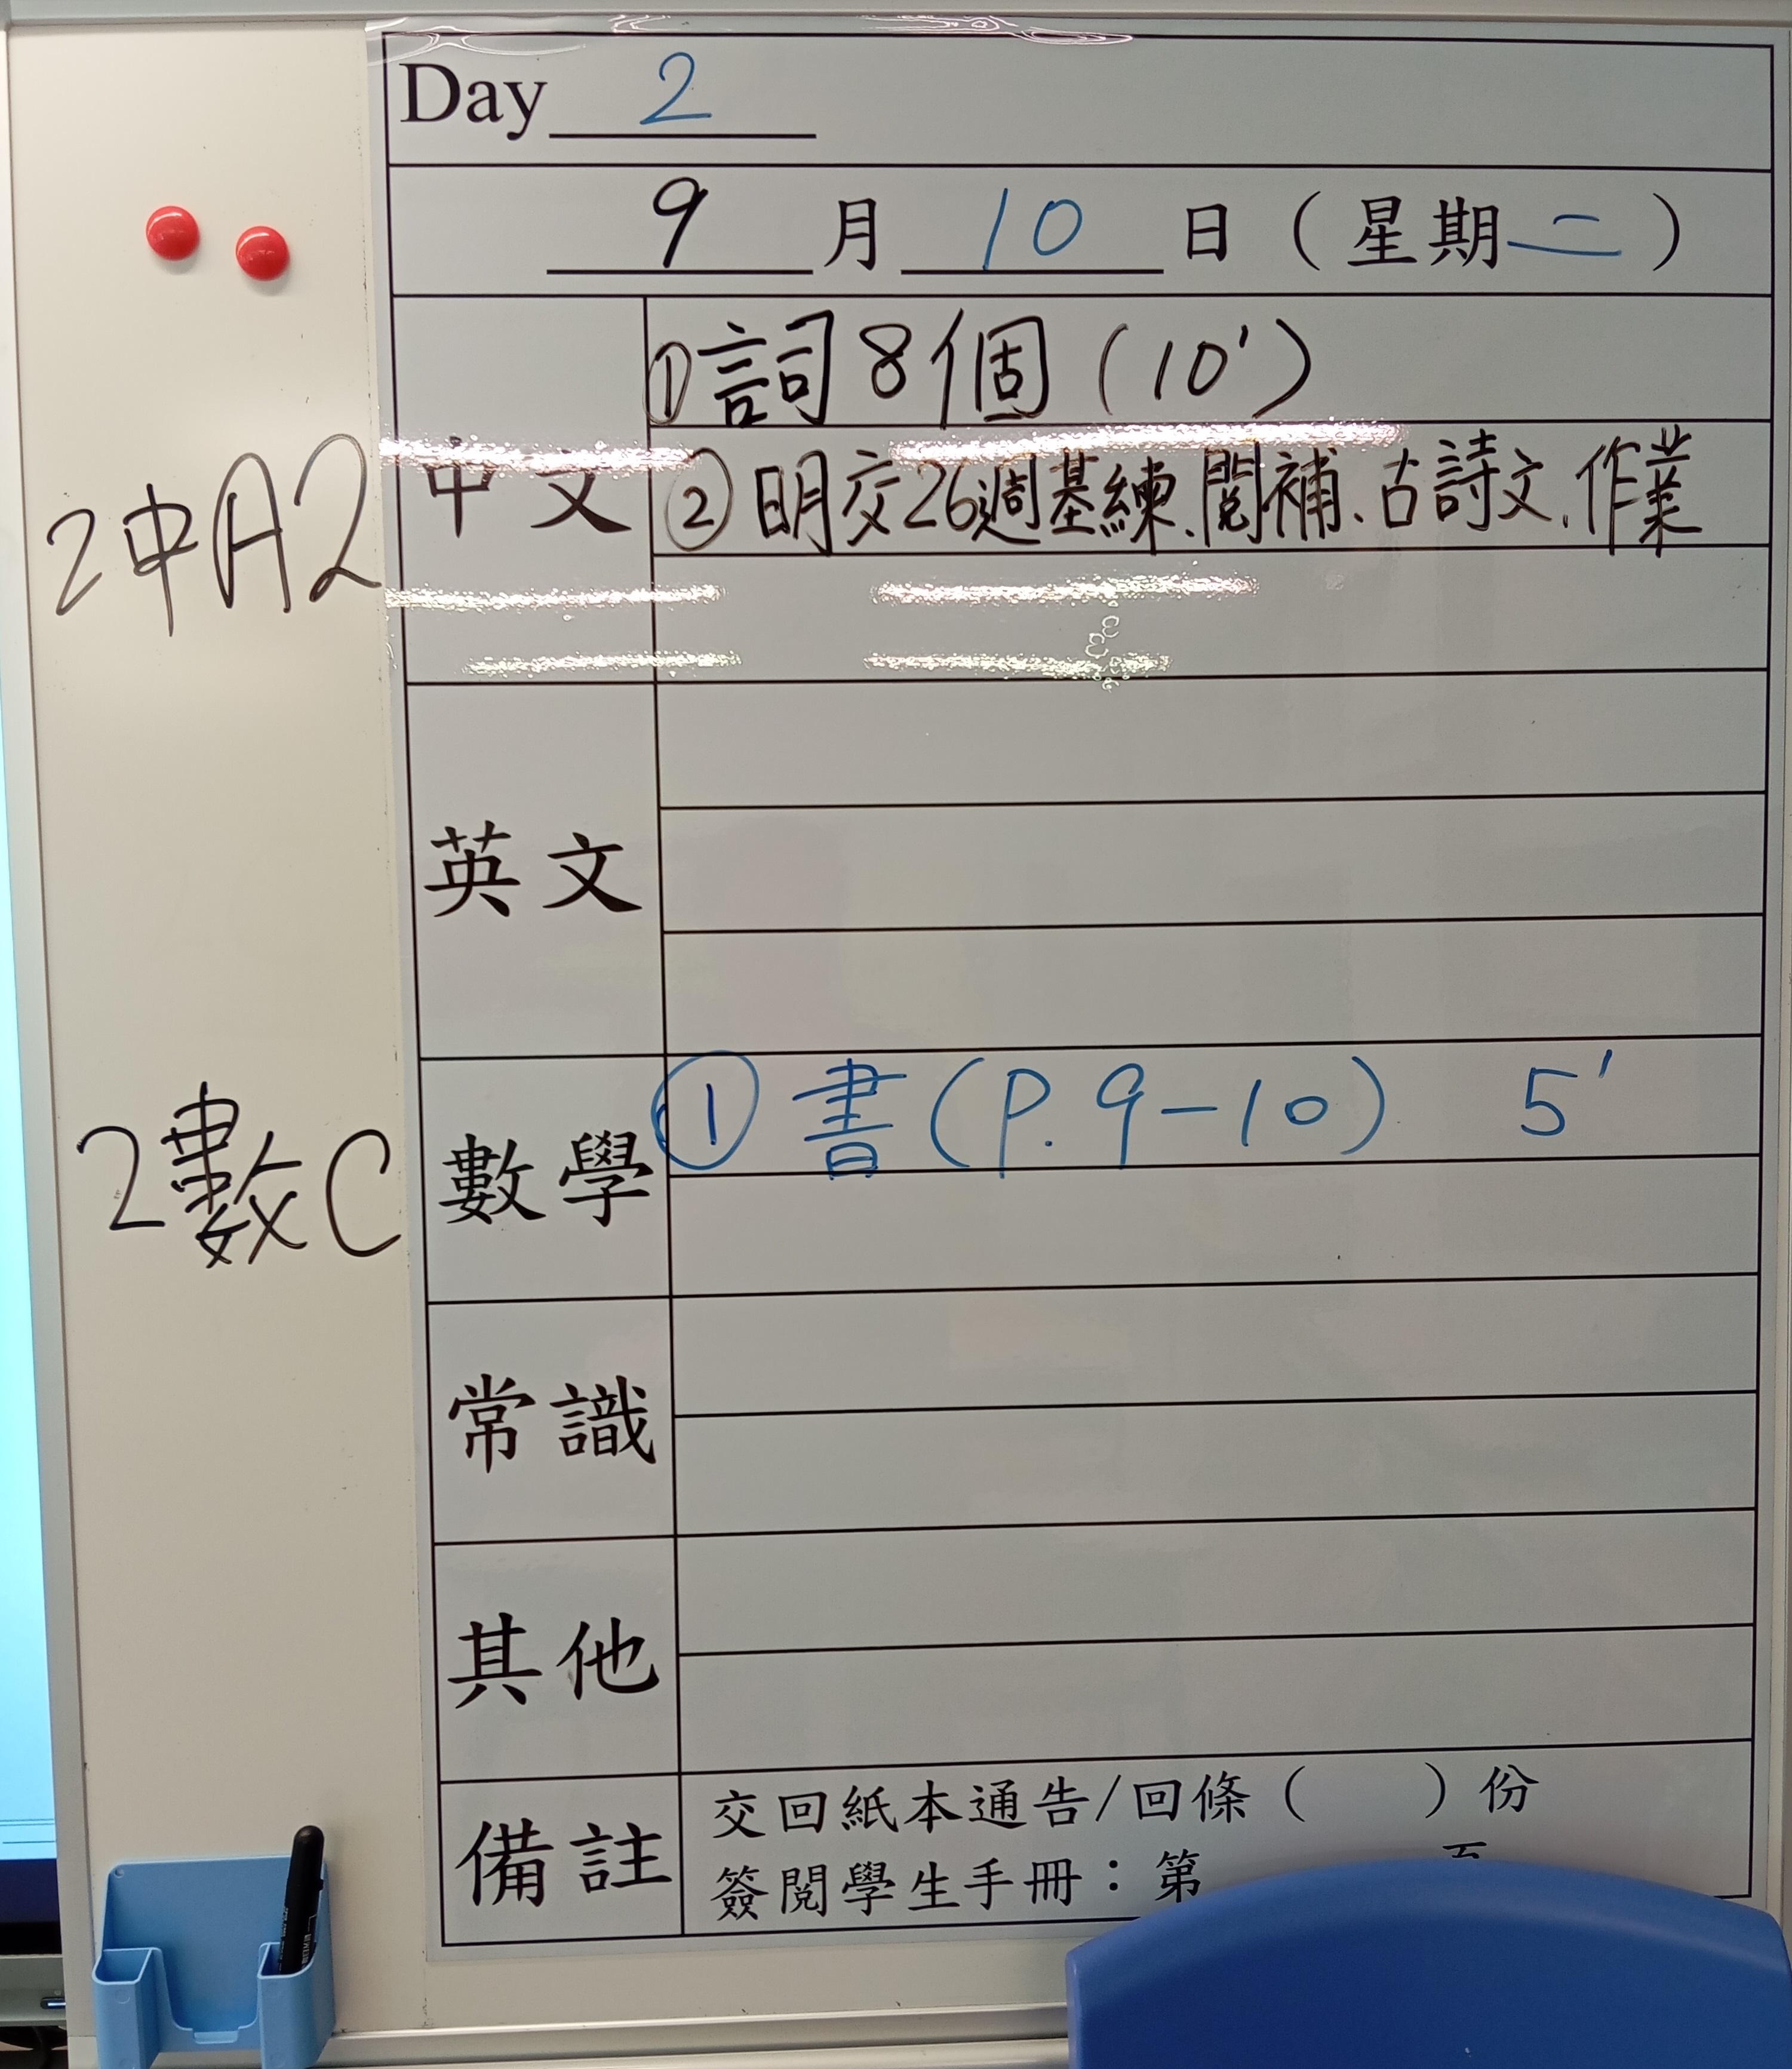 Day 2
9 月 10 日 (星期二)
2中A2
中文
①詞8個 (10')
②明交26週基練、閱補、古詩文、作業
英文
2數C
數學
① 書 (P. 9-10) 5'
常識
其他
備註
交回紙本通告/回條 ( ) 份
簽閱學生手冊：第